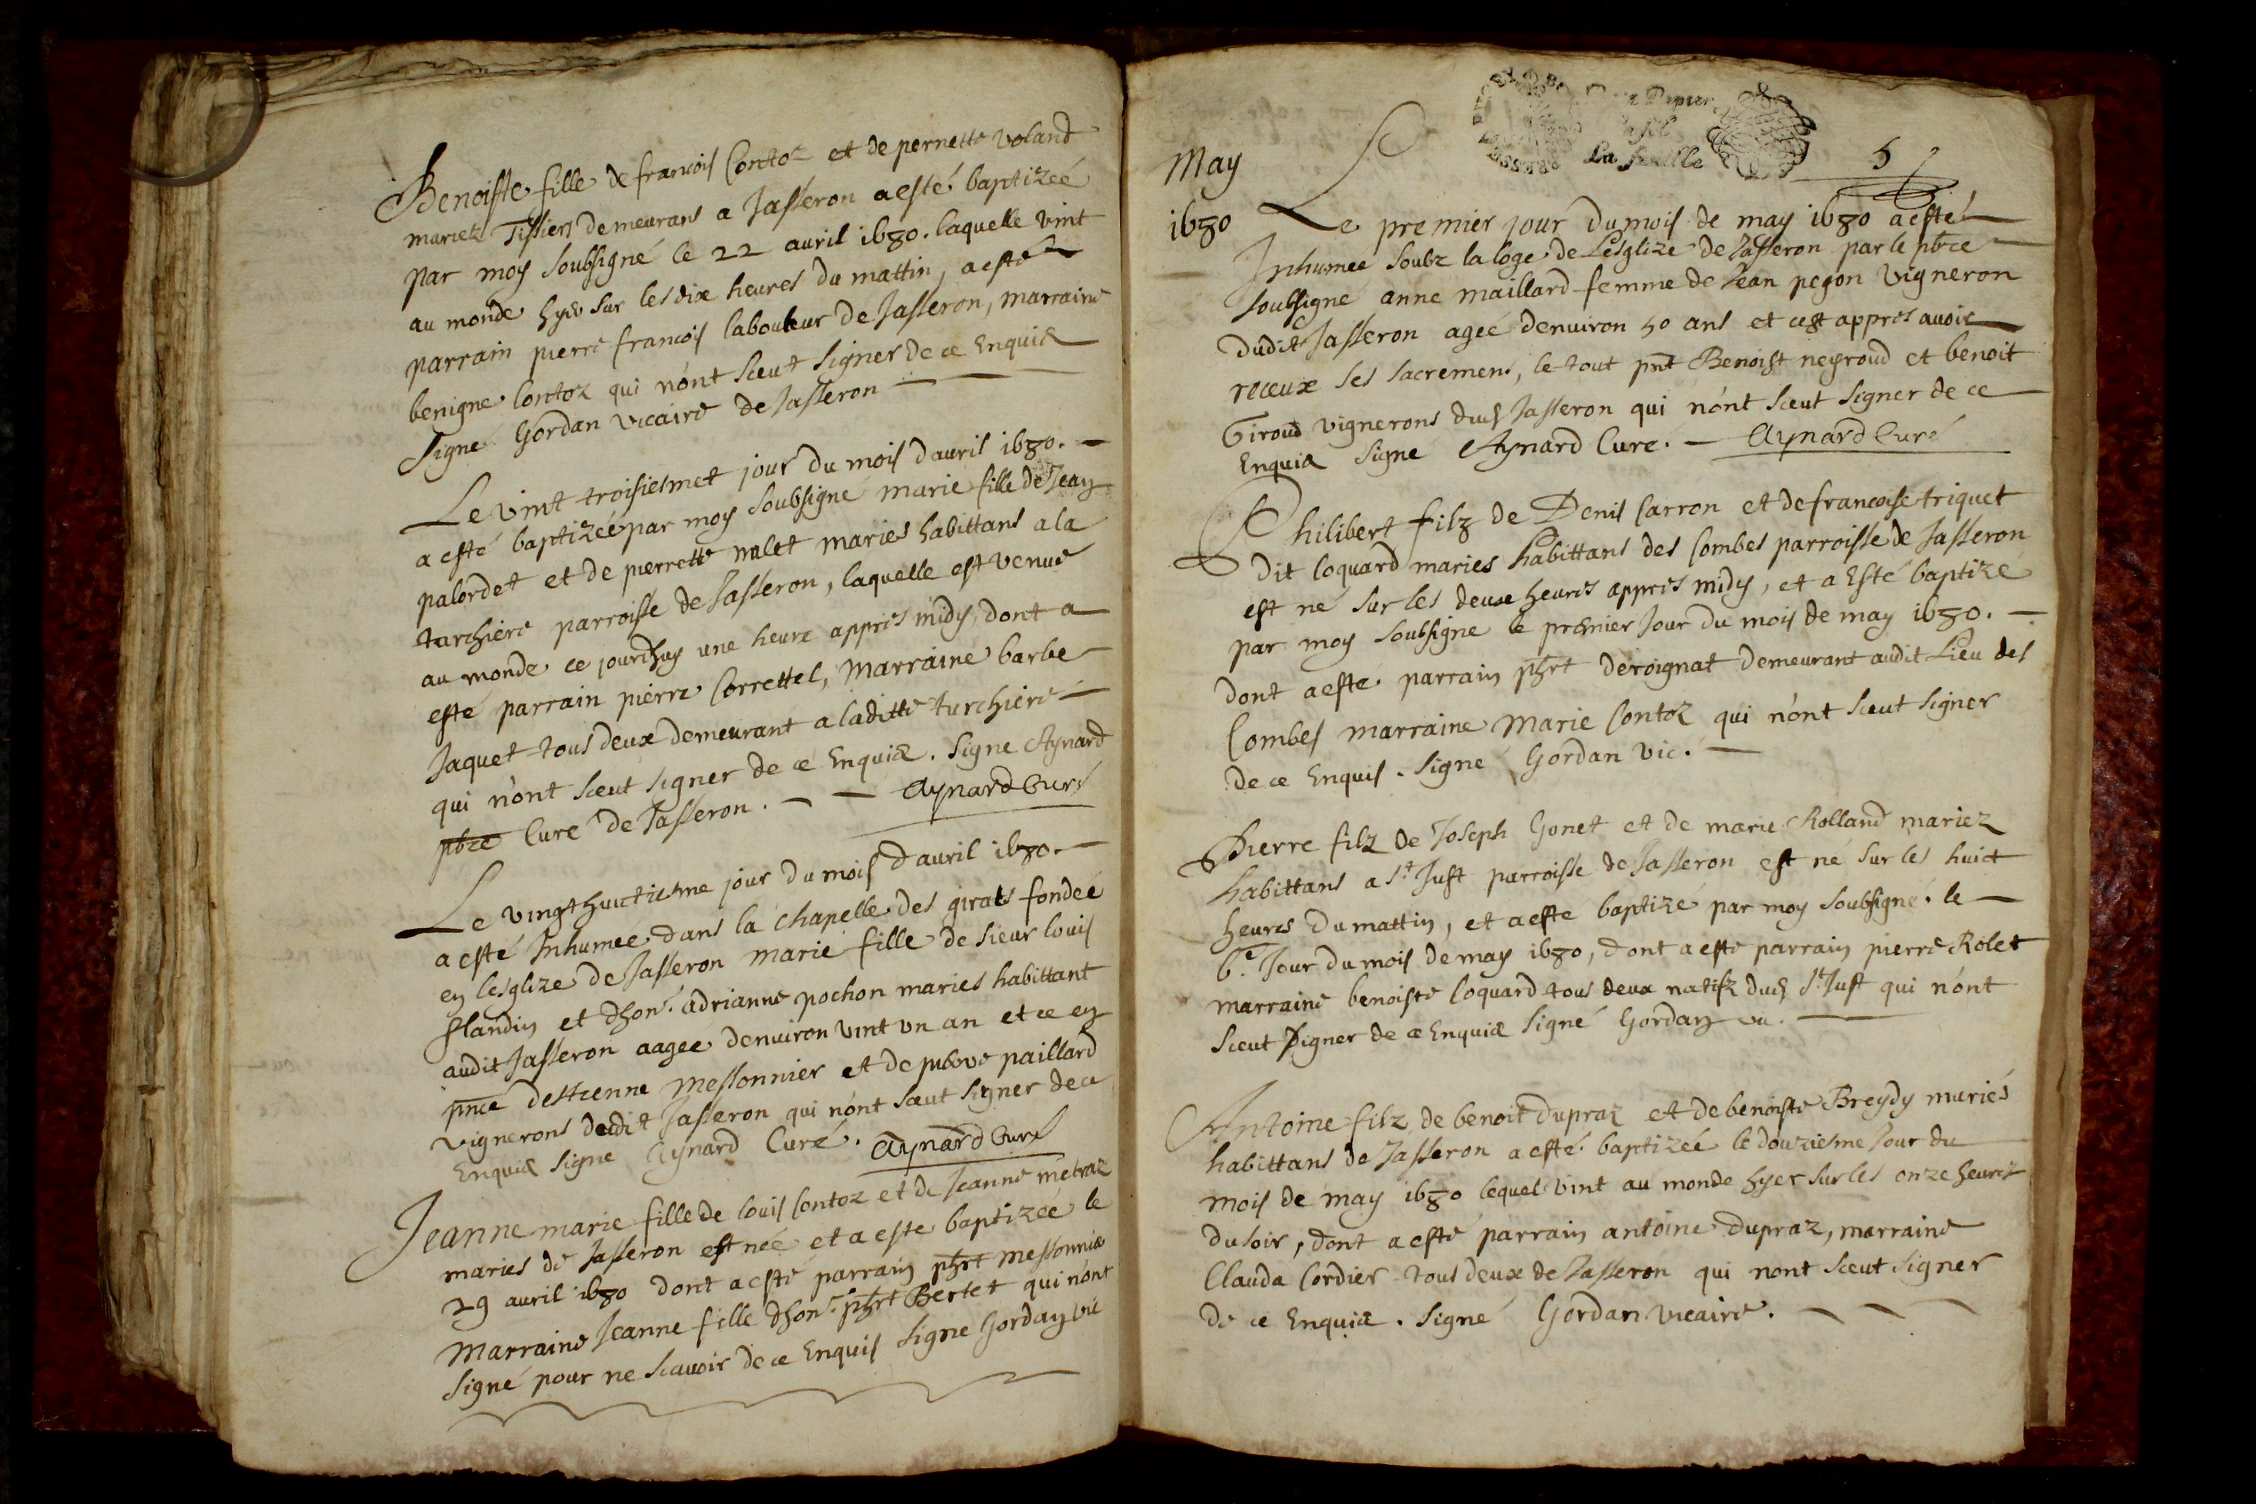 Benoiste fille de francois Contoz et de pernette voland
mariez Tissiers demeurans a Jasseron a esté baptizeé
par moy soubsigné le 22 avril 1680. laquelle vint
au monde hyer sur les dix heures du mattin, a esté
parrain pierre francois laboureur de Jasseron, marraine
benigne Contoz qui nónt sceut signer de ce Enquis
signé Gordan vicaire de Jasseron
Le vint troisiesmet jour du mois davril 1680.
a esté baptizeé par moy soubsigné marie fille de Jean
palordet et de pierrette mlet maries habittans a la
turchiere parroisse de Jasseron, laquelle est venue
au monde ce jourdhuy une heure appres midy, dont a
esté parrain pierre Correttel, Marraine barbe
Jaquet tous deux demeurant a laditte turchiere
qui nónt sceut signer de ce Enquis. Signe Aynard
pbre Curé de Jasseron. Aynard Curé
Le vingt huictiesme jour du mois davril 1680.
a esté Inhumee dans la chapelle des girats fondeé
en lesglize de Jasseron marie fille de sieur louis
flandin et dhon.e adrianne pochon maries habittant
audit Jasseron aagee denuiron vint un an et ce en
pnce destienne messonnier et de paillard
vignerons dudit Jasseron qui nónt sceut signer de ce
Enquis signe Aynard Curé. Aynard Curé
Jeanne marie fille de louis Contoz et de Jeanne metraz
maries de Jasseron est neé et a este baptizeé le
29 avril 1680 dont a esté parrain phrt messonnier
Marraine Jeanne fille dhon.e phrt Bertet qui nónt
signé pour ne scauoir de ce Enquis signe Gordan vic
La feuille
5
May
1680
Le premier jour du mois de may 1680 a esté
Inhumee soubz la loge de Lésglize de Jasseron par le pbre
soubsigné anne maillard femme de Jean pegon vigneron
dudit Jasseron ageé denuiron 50 ans et cest appres auoir
receux ses sacremens, le tout pnt Benoist neyroud et benoit
Giroud vignerons dud Jasseron qui nónt sceut signer de ce
Enquis signé Aynard Curé. Aynard Curé
Philibert filz de Denis Carron et de francoise triquet
dit Coquard maries habittans des Combes parroisse de Jasseron
est né sur les deux heures appres midy, et a Esté baptizé
par moy soubsigne le premier Jour du mois de may 1680.
dont a esté parrain phrt deroignat demeurant audit Lieu des
Combes marraine Marie Contoz qui nónt sceut signer
de ce Enquis. signé Gordan vic.
Pierre filz de Joseph Gonet et de marie Rolland mariez
habittans a st Just parroisse de Jasseron est né sur les huict
heures du mattin, et a esté baptizé par moy soubsigné. le
6.e Jour du mois de may 1680, dont a este parrain pierre Rolet
marraine benoiste Coquard tous deux natifz dud st Just qui nónt
sceut signer de ce Enquis signé Gordan vic.
Antoine filz de benoit dupraz et de benoiste Breydy mariés
habittans de Jasseron a esté baptizeé le douziesme Jour du
mois de may 1680 lequel vint au monde hyer sur les onze heures
du soir, dont a esté parrain antoine dupraz, marraine
Clauda Cordier tous deux de Jasseron qui nont sceut signer
de ce Enquis. signé Gordan vicaire.